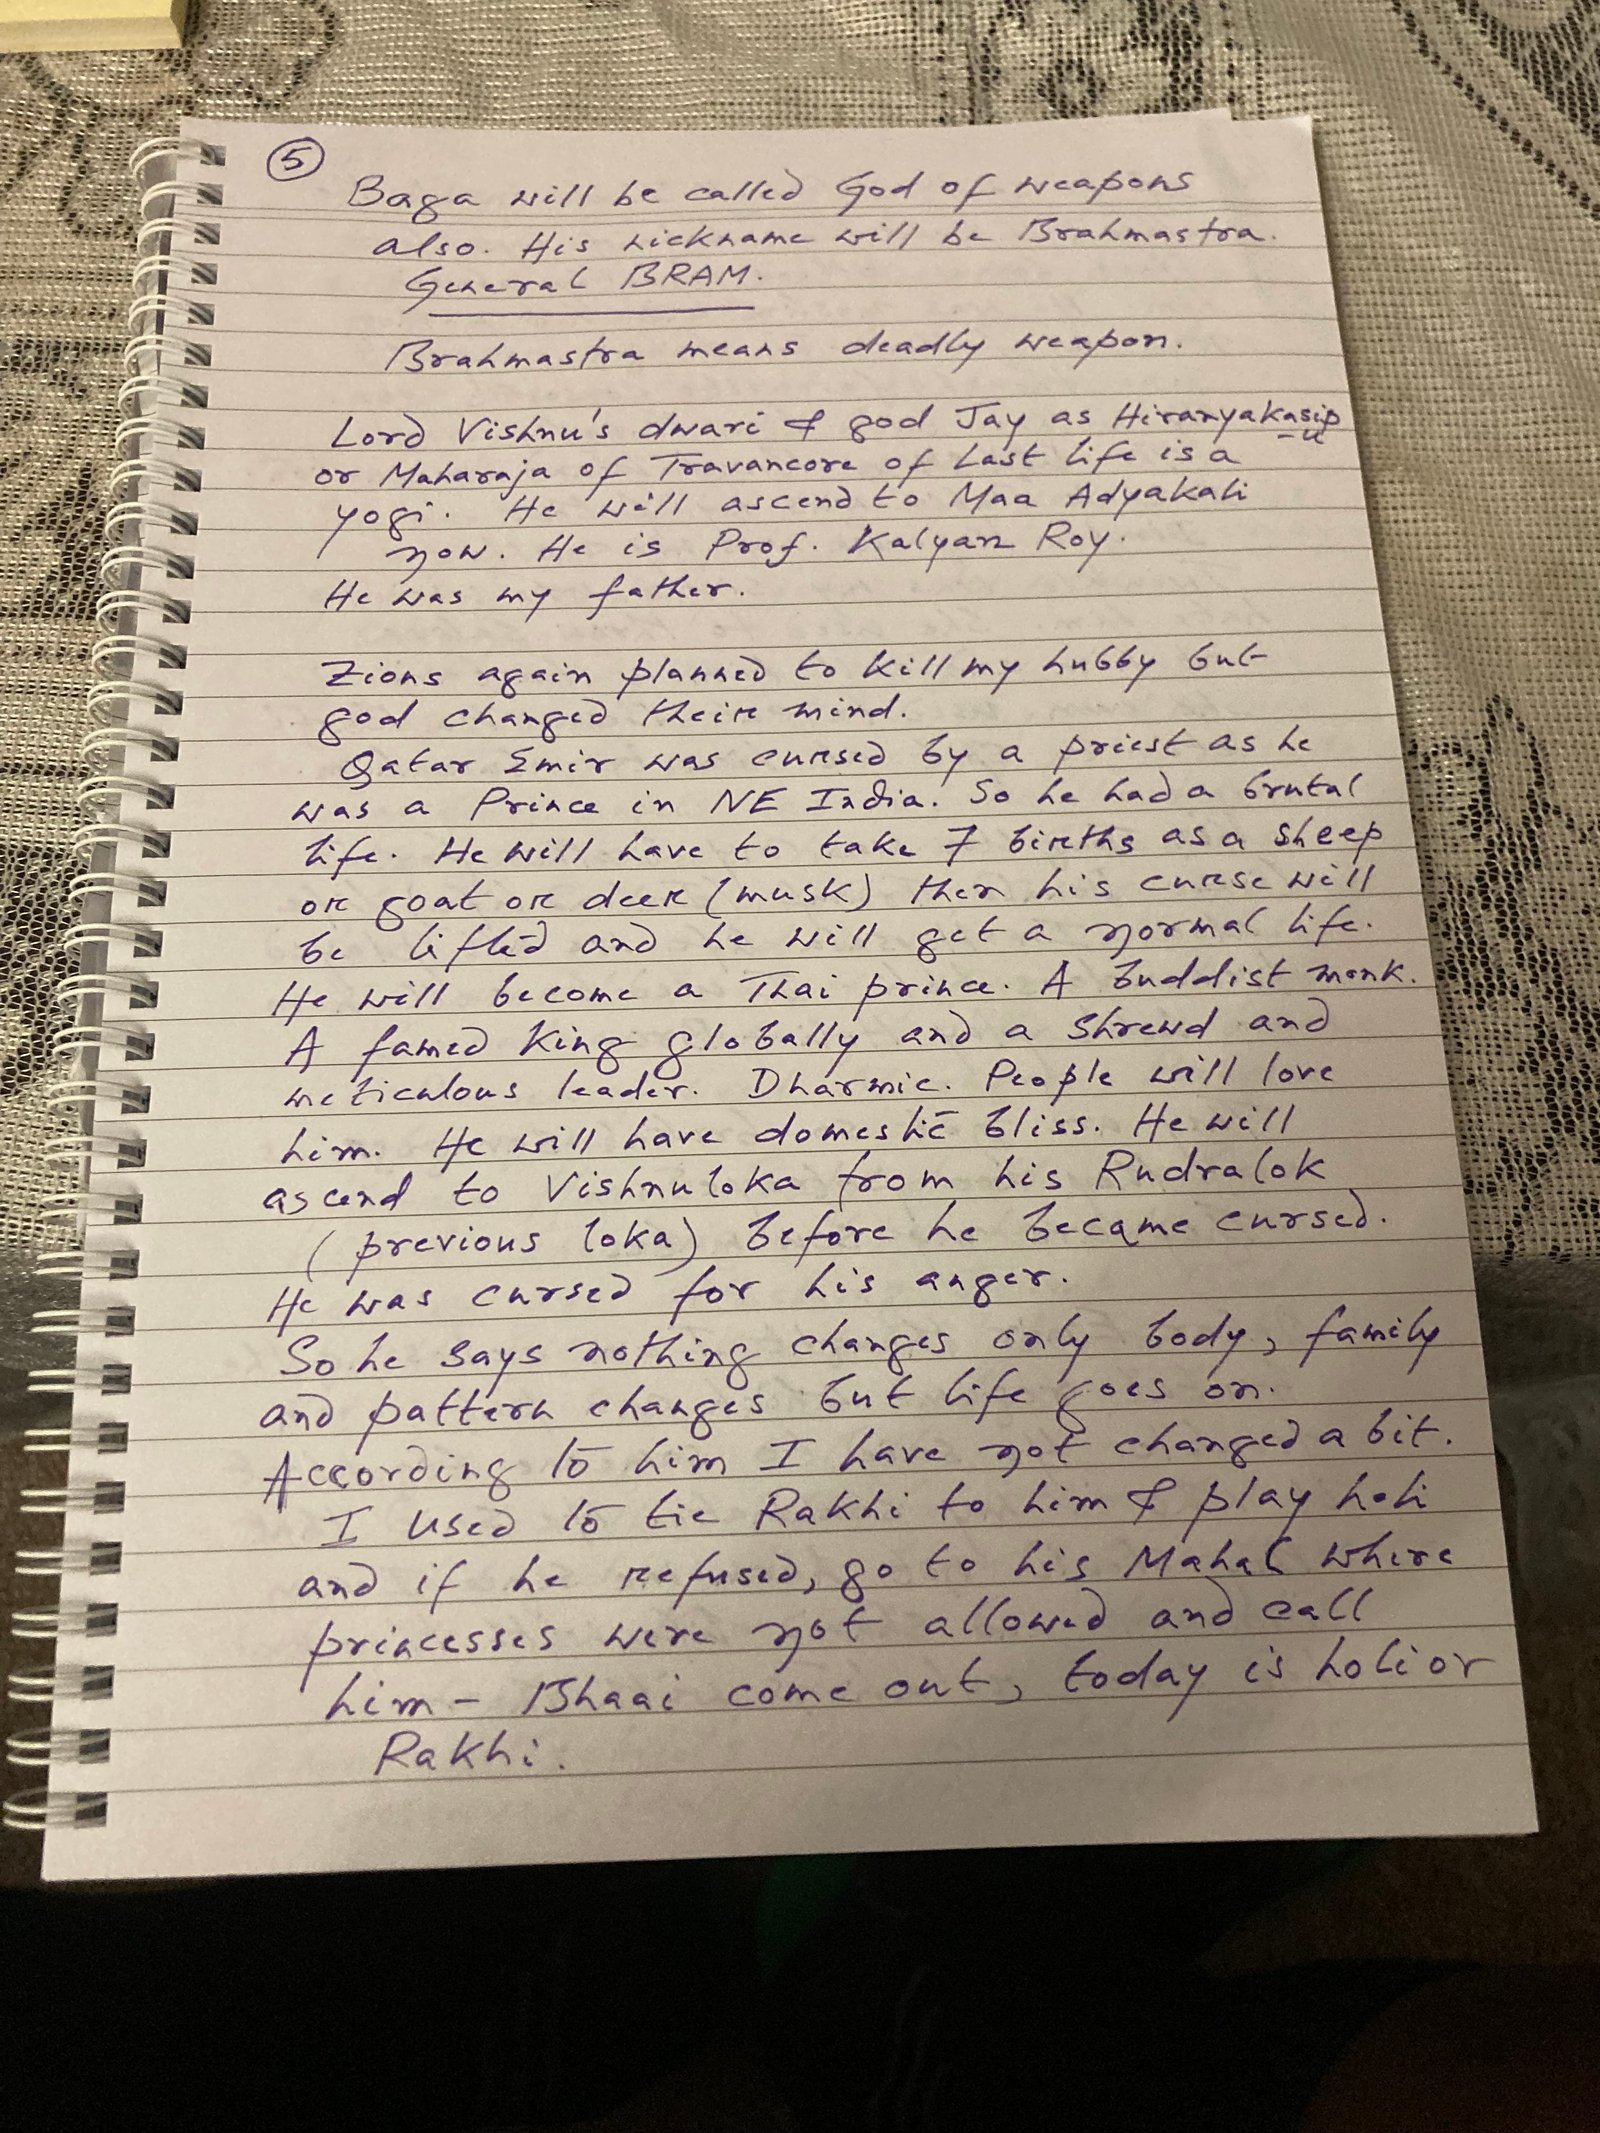 5
Baga will be called God of weapons
also. His nickname will be Brahmastra.
General BRAM.
Brahmastra means deadly weapon.
Lord Vishnu's dwari & god Jay as Hiranyakasip
-u
or Maharaja of Travancore of Last life is a
yogi. He will ascend to Maa Adyakali
now. He is Prof. Kalyan Roy.
He was my father.
Zions again planned to kill my hubby but
god changed their mind.
Qatar Emir was cursed by a priest as he
was a Prince in NE India. So he had a brutal
life. He will have to take 7 births as a sheep
or goat or deer (musk) then his curse will
be lifted and he will get a normal life.
He will become a Thai prince. A buddist monk.
A famed King globally and a shrewd and
meticulous leader. Dharmic. People will love
him. He will have domestic bliss. He will
ascend to Vishnuloka from his Rudralok
(previous loka) before he became cursed.
He was cursed for his anger.
So he says nothing changes only body, family
and pattern changes but life goes on.
According to him I have not changed a bit.
I used to tie Rakhi to him & play holi
and if he refused, go to his Mahal where
princesses were not allowed and call
him - Bhaai come out, today is holi or
Rakhi.